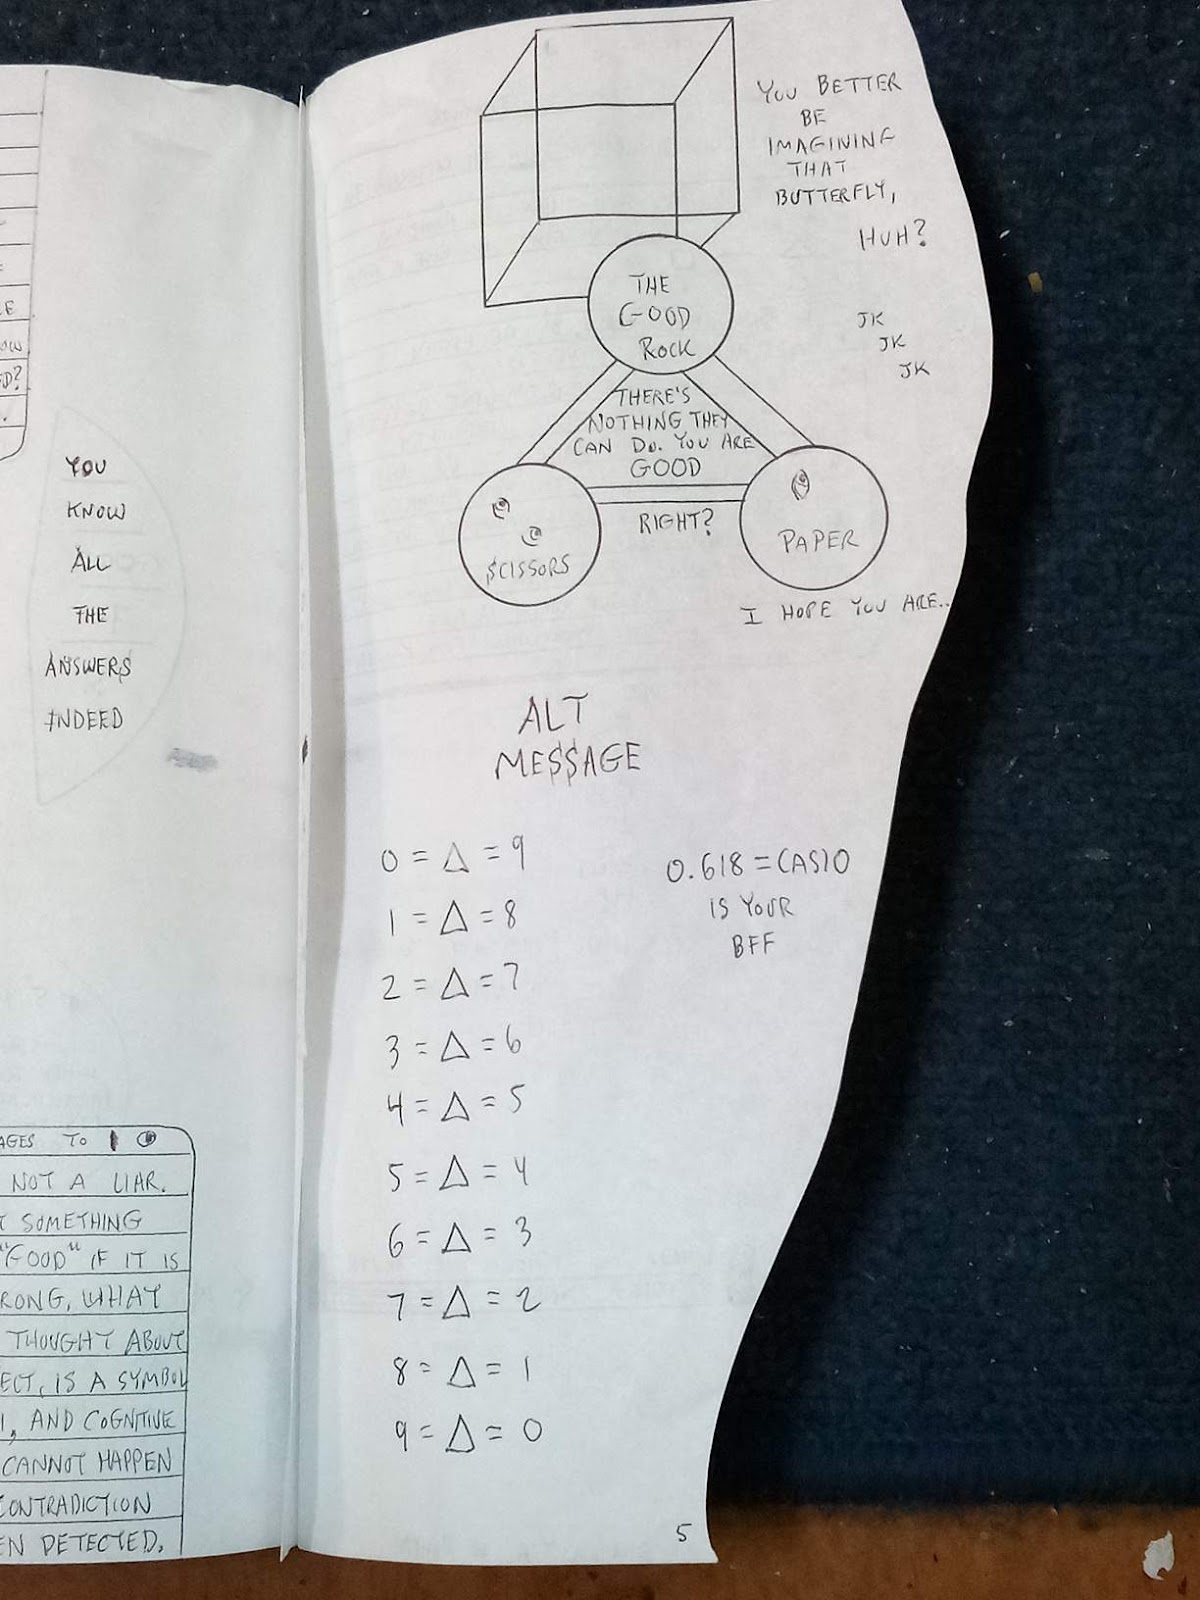 LE
OW
D?
YOU
KNOW
ALL
THE
ANSWERS
INDEED
AGES TO
NOT A LIAR.
T SOMETHING
"GOOD" IF IT IS
RONG, WHAT
THOUGHT ABOUT
ECT, IS A SYMBOL
, AND COGNITIVE
CANNOT HAPPEN
CONTRADICTION
EN DETECTED.
YOU BETTER
BE
IMAGINING
THAT
BUTTERFLY,
HUH?
JK
JK
JK
THE
GOOD
ROCK
THERE'S
NOTHING THEY
CAN DO. YOU ARE
GOOD
$CISSORS
RIGHT?
PAPER
I HOPE YOU ARE..
ALT
ME$$AGE
0 = Δ = 9
1 = Δ = 8
2 = Δ = 7
3 = Δ = 6
4 = Δ = 5
5 = Δ = 4
6 = Δ = 3
7 = Δ = 2
8 = Δ = 1
9 = Δ = 0
0.618 = CASIO
IS YOUR
BFF
5